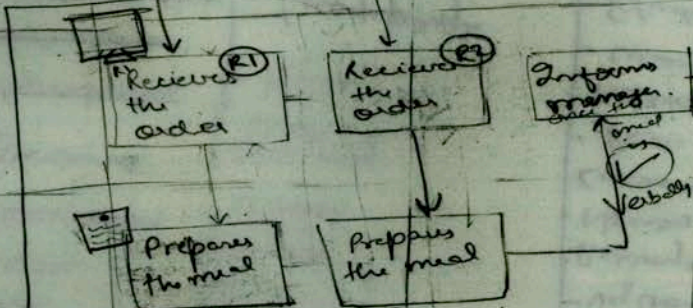 R1
Reciever
the
order
R2
Reciever
the
order
Informs
manager
once the
meal
is
Verbally
Prepares
the meal
Prepares
the meal